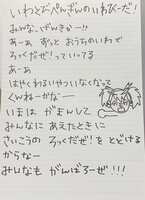 いわとびぺんぎんのいわびーだ!
みんなー、げんきかー!!
あーあ ずっと おうちのいわで
ろっくだぜ!っていってる
あーあ
はやくわるいやついなくなって
くんねーかなー
いまは がまんして
みんなに あえたときに
さいこうの ろっくだぜ!を とどける
からなー
みんなも がんばろーぜ!!!